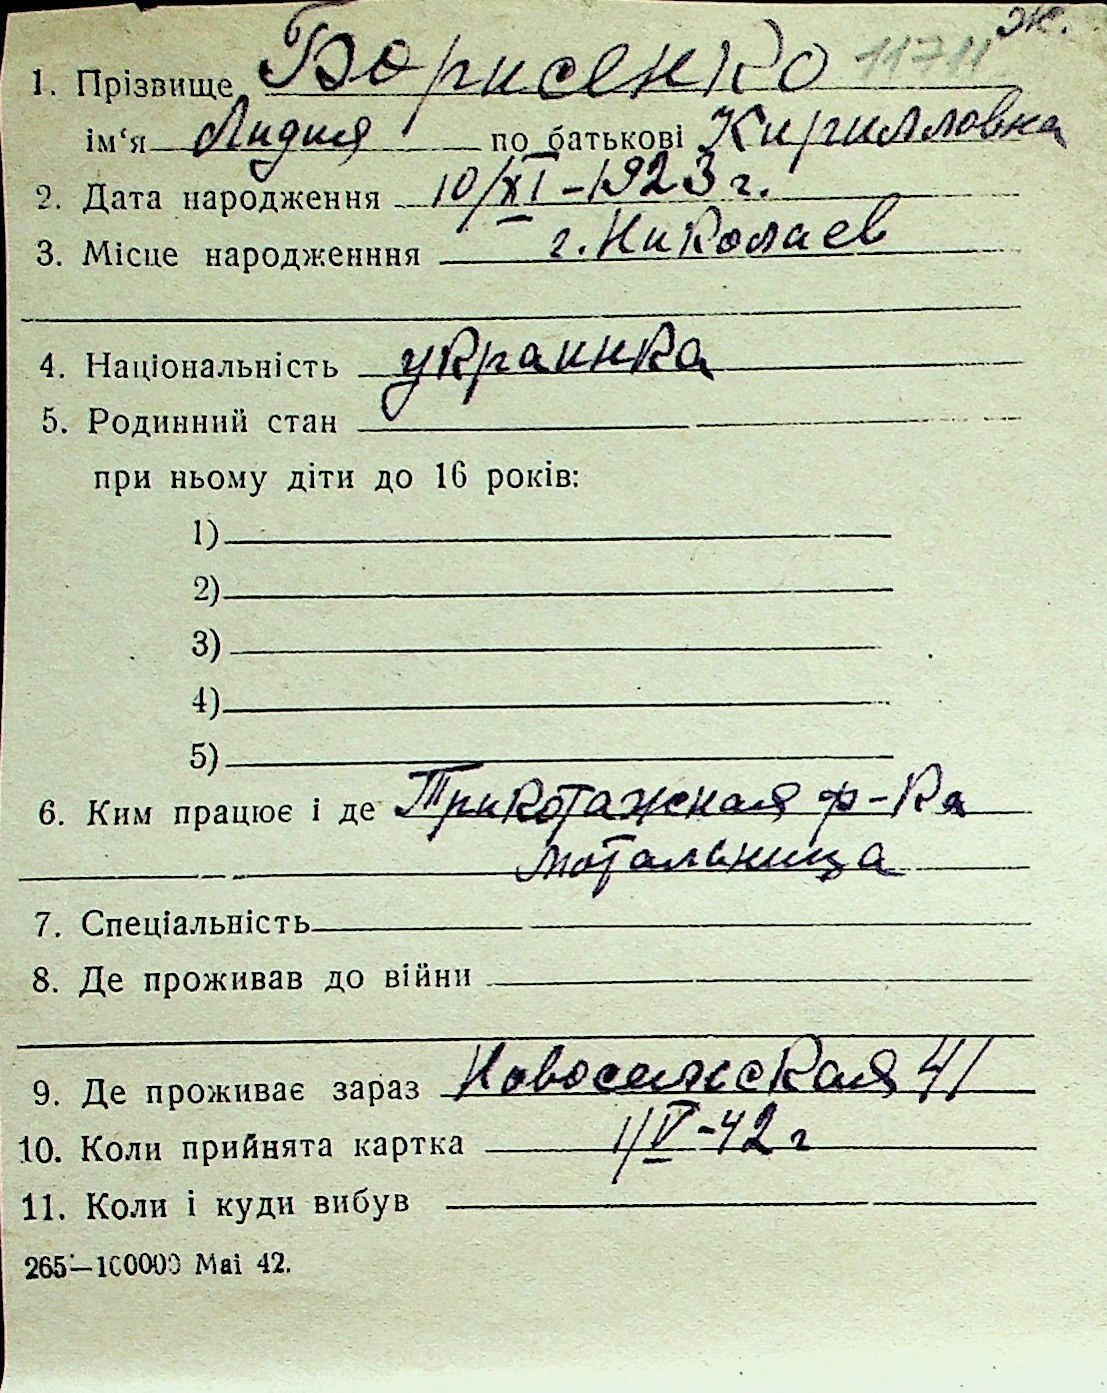 ж.
1. Прізвище Борисенко 11711
ім‘я Лидия по батькові Кирилловна
2. Дата народження 10/XI-1923 г.
3. Місце народженння г. Николаев
4. Національність украинка
5. Родинний стан
при ньому діти до 16 років:
1)
2)
3)
4)
5)
6. Ким працює і де Трикотажная ф-ка
мотальница
7. Спеціальність
8. Де проживав до війни
9. Де проживає зараз Новосельская 41
10. Коли прийнята картка 1/V-42 г
11. Коли і куди вибув
265—100000 Mai 42.